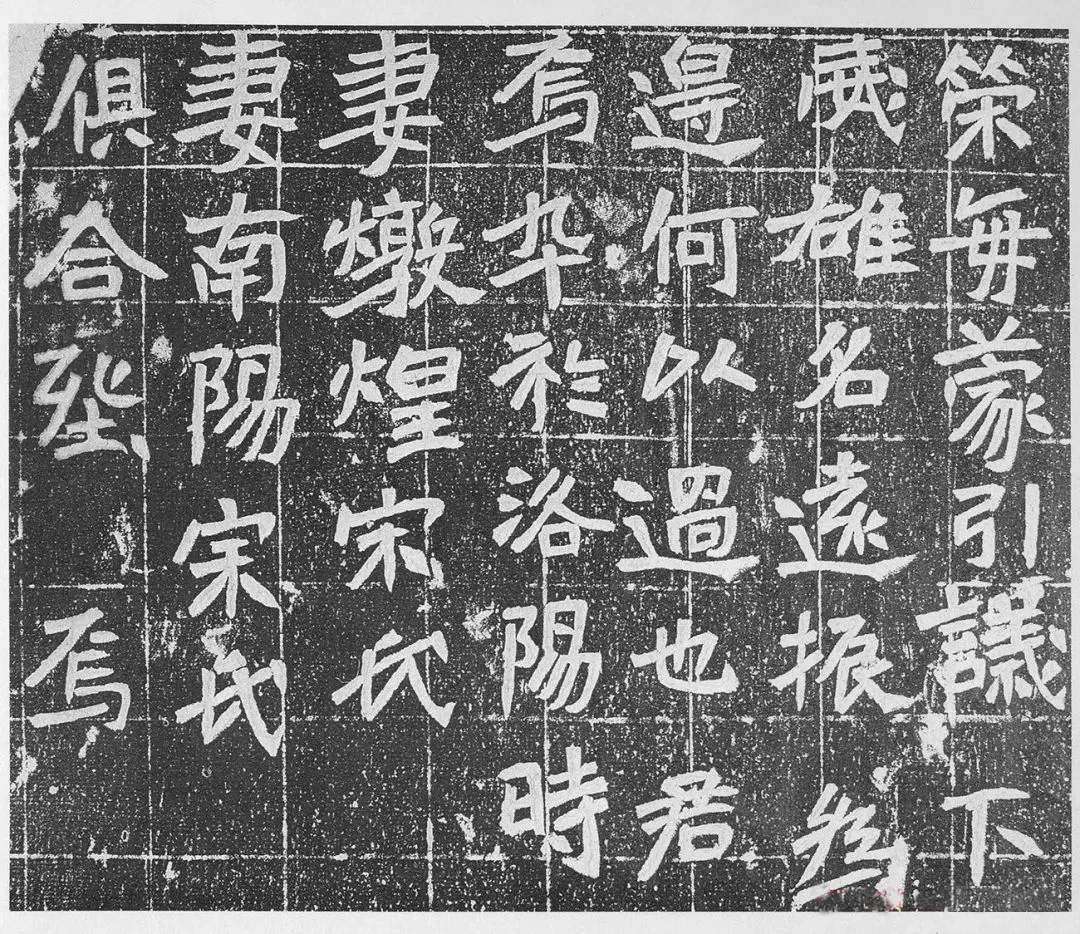 榮每蒙引議下
威雄名遠振
邊何以過也君
焉卒於洛陽時
妻燉煌宋氏
妻南陽宋氏
俱合葬焉